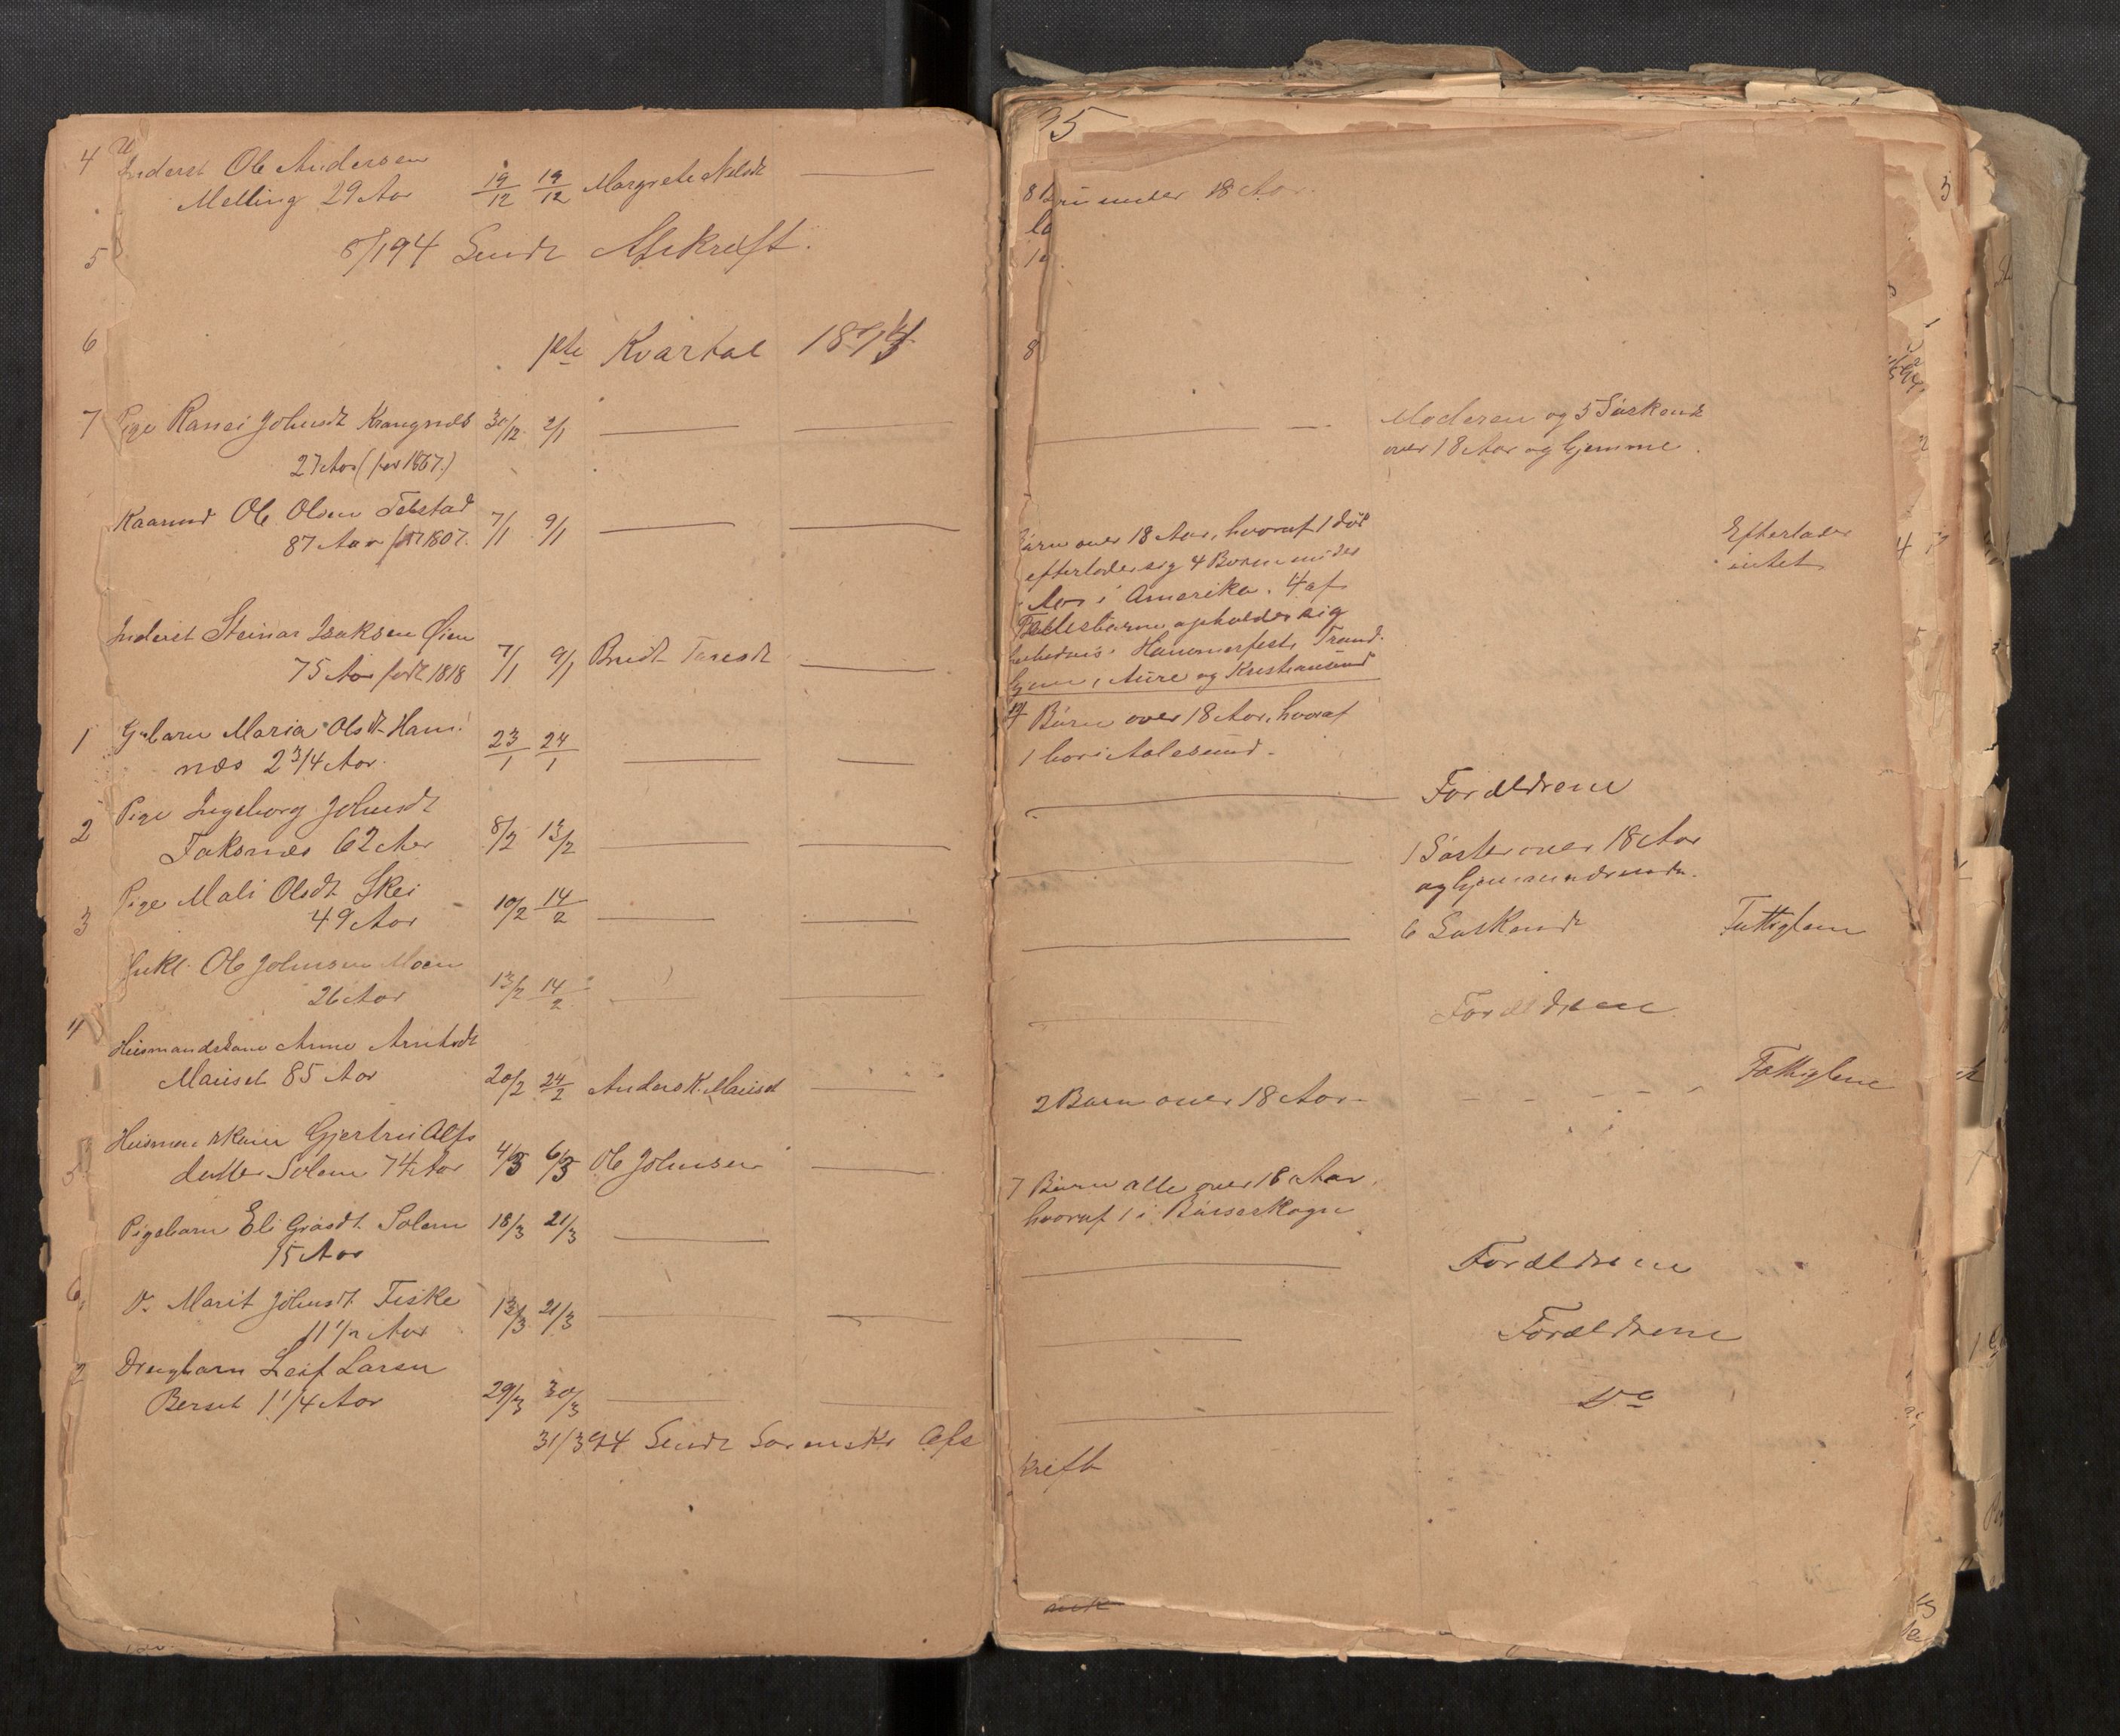 4 Inderst Ole Andersen
Melling 29 Aar 19/12 19/12 Margrete Nilsdt
5 8/1 94 Sendt Afskrift.
6 1ste Kvartal 1894
7 Pige Ranei Johnsdt Krangnæs 30/12 2/1
27 Aar (før 1867.)
Kaarmd Ole Olsen Telstad 7/1 9/1
87 Aar født 1807.
Inderst Steinar Isaksen Øien
75 Aar født 1818 7/1 9/1 Brudt Taresdt
1 Maria Olsdt Ham
næs 2 3/4 Aar. 23/1 24/1
2 Pige Ingeborg Johnsdt
Taksnæs 62 Aar 8/2 13/2
3 Pige Mali Olsdt Skei
49 Aar 10/2 14/2
Ole Johnsen Moen
26 Aar 13/2 14/2
4 Husmandskone Anne Arntsdt
Mauset 85 Aar 20/2 24/2 Anders K. Mauset
Gjertru Alfs
datter Solem 74 Aar 4/3 6/3 Ole Johnsen
5 Pigebarn Eli Solem 18/3 21/3
15 Aar
6 D. Marit Johnsdt Fiske
11 1/2 Aar 13/3 21/3
2 Drengbarn Leif Larsen
Berset 1 1/4 Aar 29/3 30/3
31/3 94 Sendt Sorensk. Afs
95
8 under 18 Aar.
8
Moderen og 5 Søskende
over 18 Aar og hjemme.
Børn over 18 Aar, hvoraf 1 død
efterlader sig 4 Børn under
Aar i Amerika. 4 af
opholder sig
Hammerfest, Trond
hjem, Aure og Kristiansund
Efterlader
intet
Børn over 18 Aar, hvoraf
1 bor i Aalesund.
Forældrene
1 Søster over 18 Aar
og
6 Søskende Fattiglem
Forældrene
2 Børn over 18 Aar. Fattiglem
7 Børn alle over 18 Aar,
hvoraf 1 i Børseskogn
Forældrene
Forældrene
Do
krift